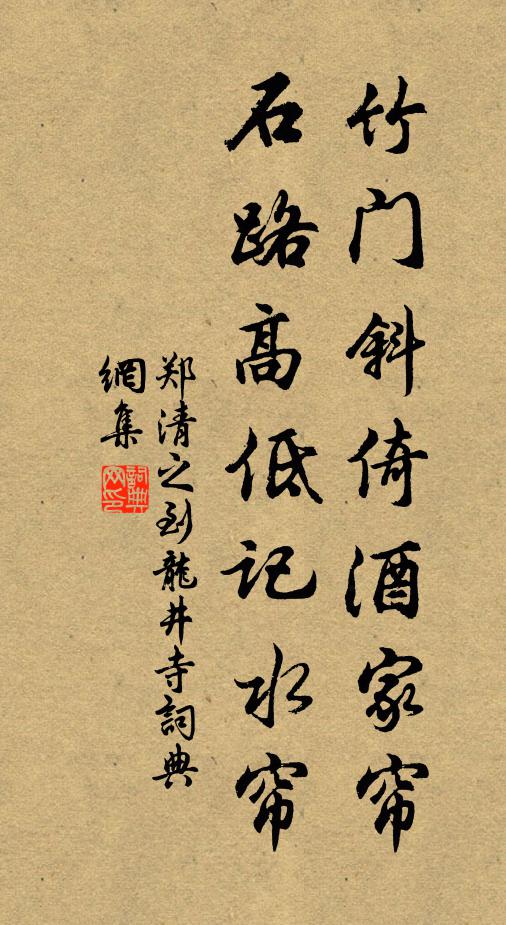 竹门斜倚酒家帘
石路高低记水帘
郑清之到龍井寺詞典
網集
詞典
网印